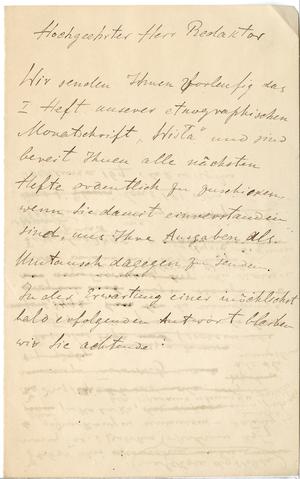 Hochgeehrter Herr Redaktor
Wir senden Ihnen forleufig das
I Heft unserer etnographischen
Monatschrift „Wisła" und sind
bereit Ihnen alle nächsten
Hefte ordentlich zu zuschicken,
wenn Sie damit einverstanden
sind, uns Ihre Ausgaben als
Umtausch dagegen zu senden.
In der Erwartung einer möchlichst
bald erfolgenden Antwort bleiben
wir Sie achtende